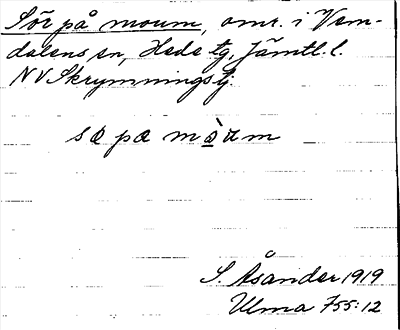 Sör på moum, omr. i Vem-
dalens sn, Hede tg, Jämtl. l.
NV Skrymningstj.
sø pæ mòum
S. Åsander 1919
Ulma 755:12